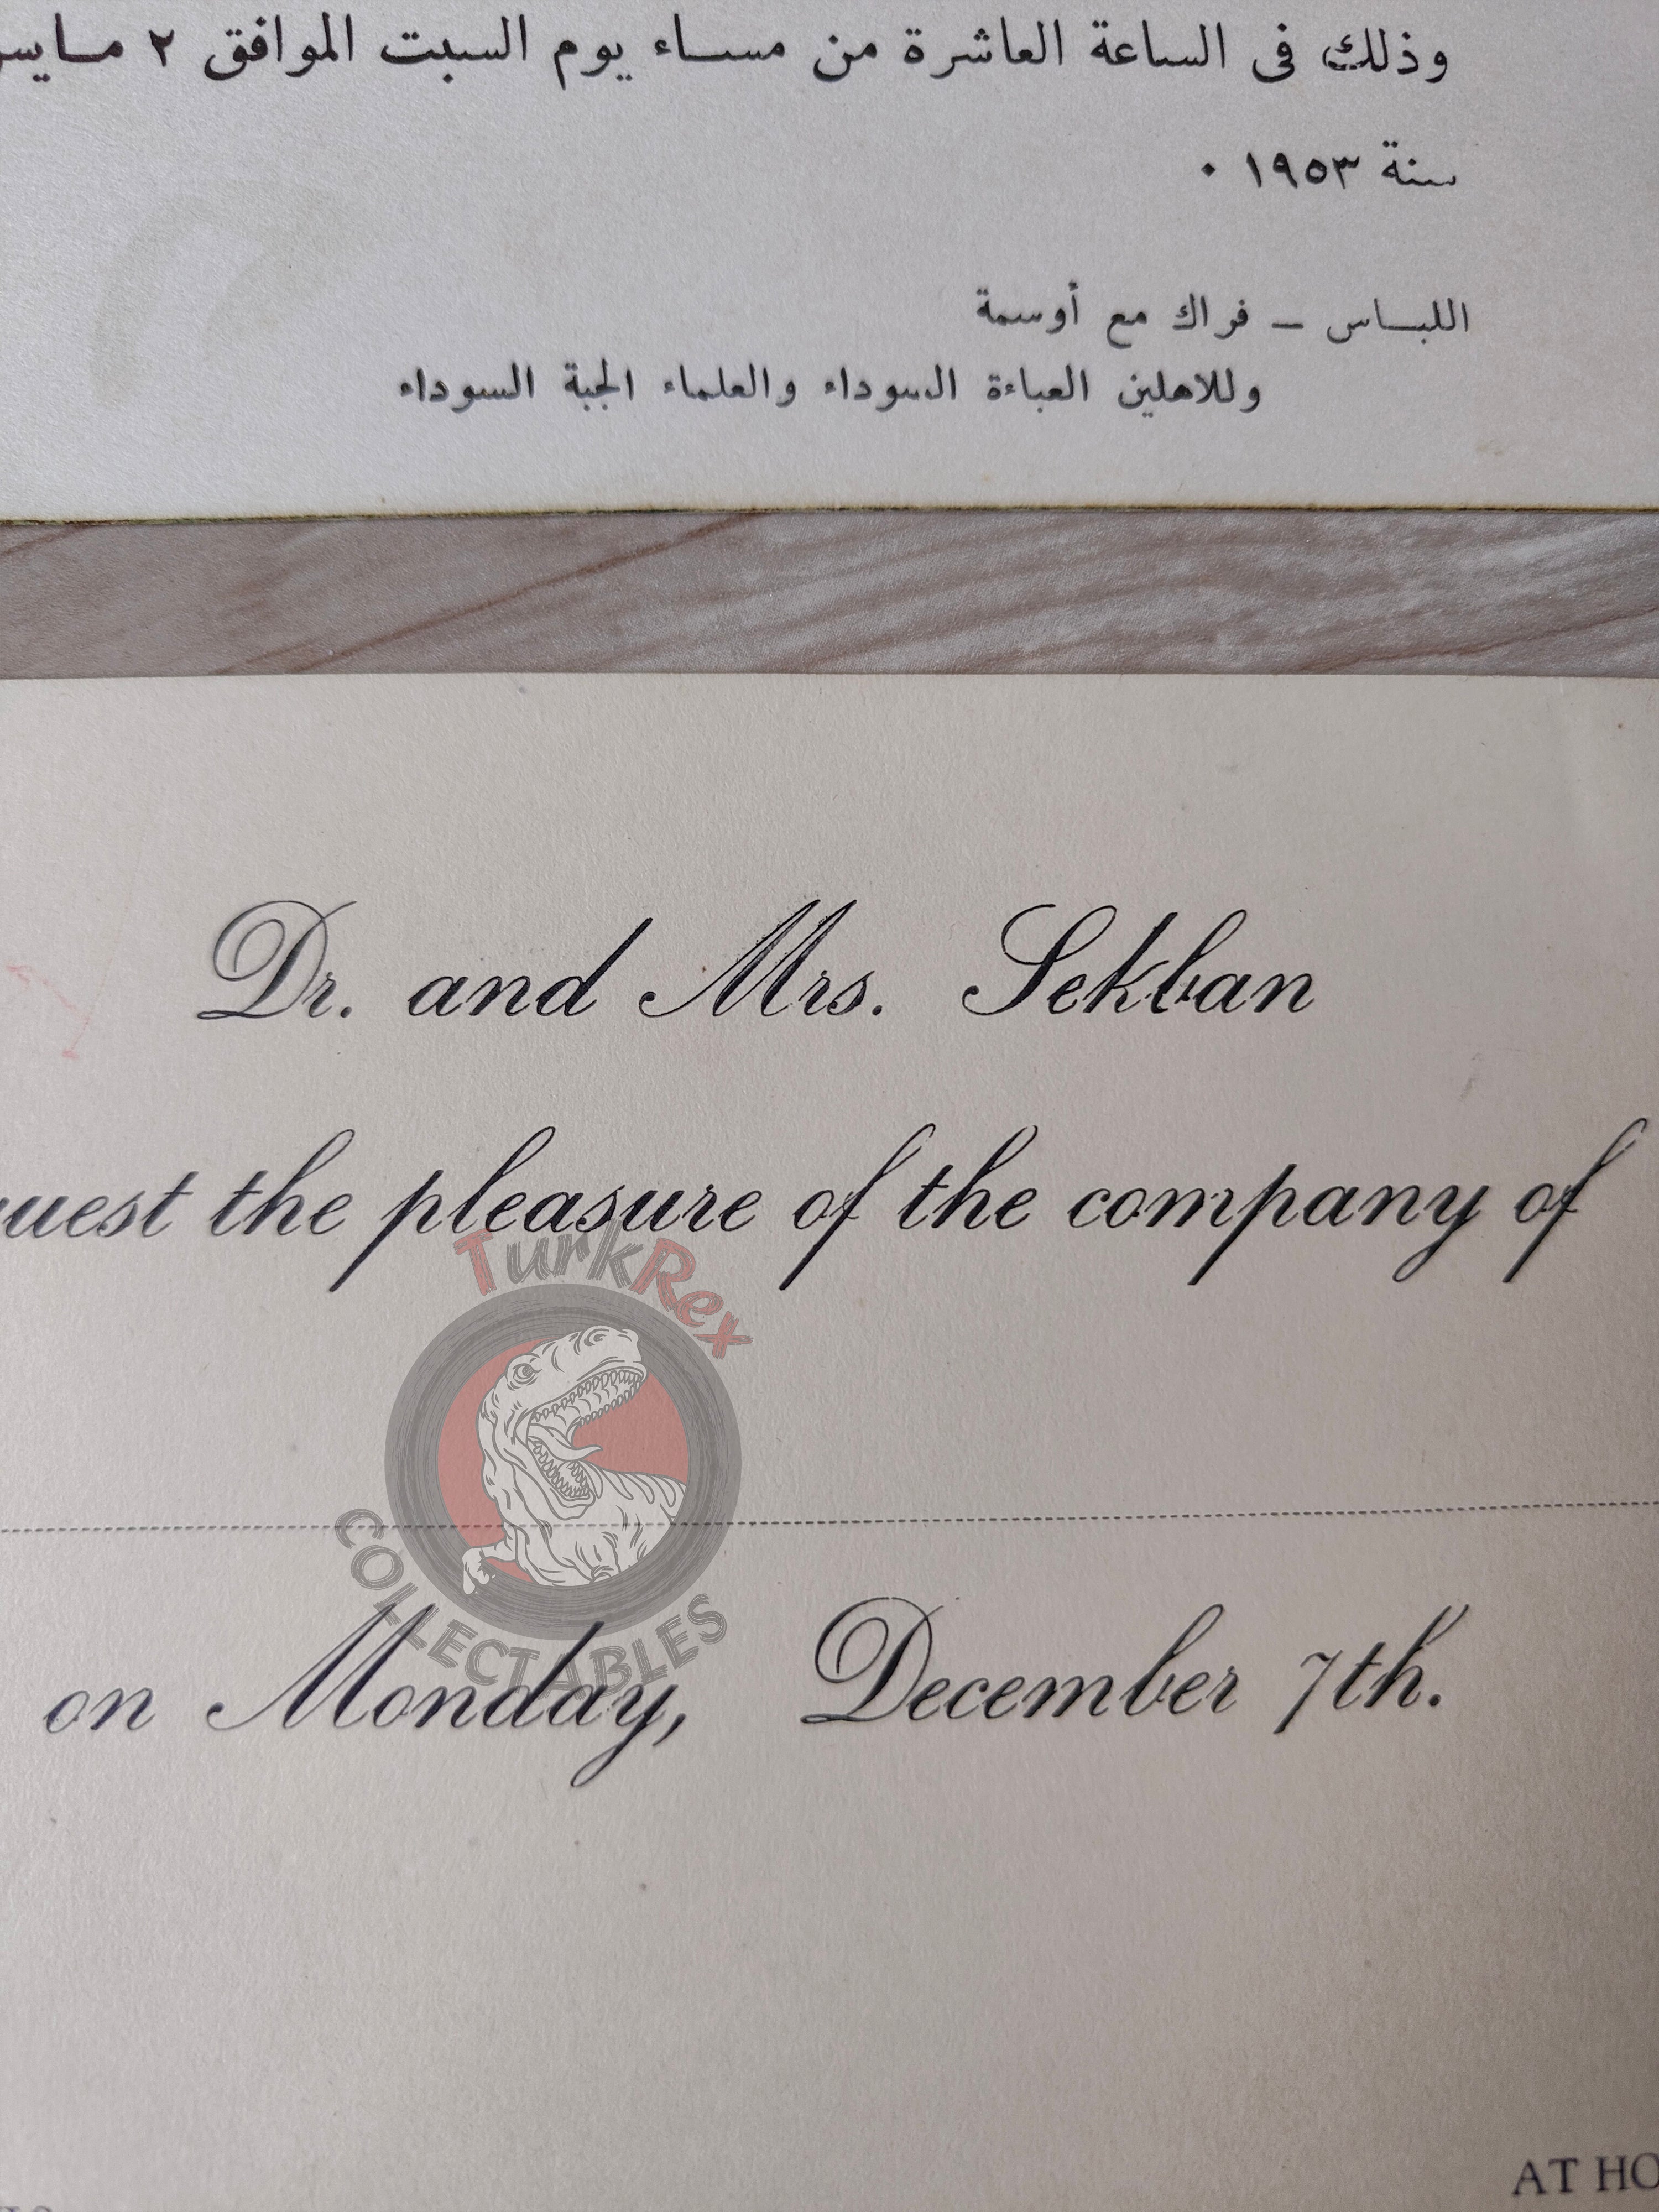 وذلك فى الساعة العاشرة من مساء يوم السبت الموافق ٢ مايس
سنة ١٩٥٣ ٠
اللباس – فراك مع أوسمة
وللاهلين العباءة السوداء والعلماء الجبة السوداء
Dr. and Mrs. Sekban
uest the pleasure of the company of
TurkRex
COLLECTABLES
on Monday, December 7th.
AT HO